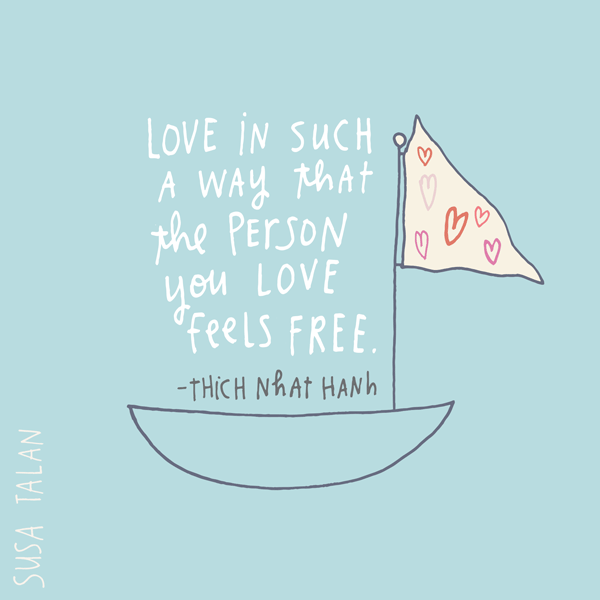 LOVE iN SUCH
A WAY that
the PERSON
you LOVE
feels FREE.
-tHiCH NhAt HANh
SUSA TALAN